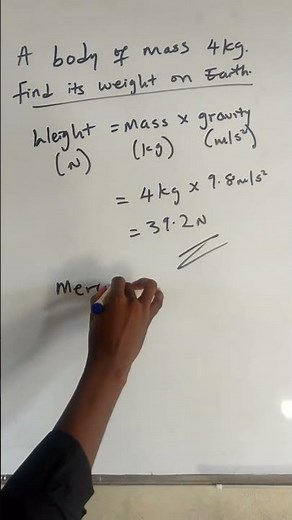 A body of mass 4kg.
find its weight on Earth.
Weight = mass x gravity
(N) (kg) (m/s²)
= 4kg x 9.8m/s²
= 39.2N
Mer